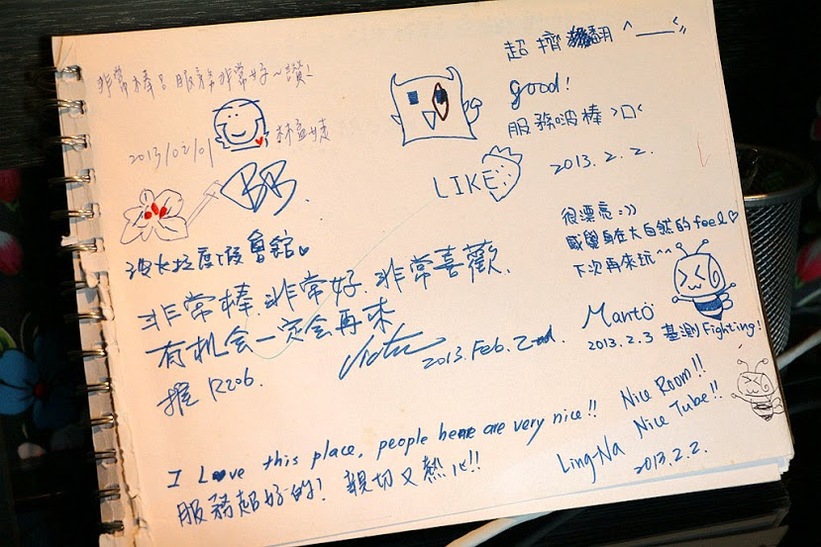 非常棒! 服務非常好~讚!
2013/02/01
超擠翻 ^___^
good!
服務啵棒 >口<
2013.2.2.
LIKE
BB
渡假會館♥
非常棒.非常好.非常喜歡.
有机会一定会再来
2013.Feb.2nd.
R206.
很漂亮=))
感覺身在大自然的feel♡
下次再來玩^^
Mantö
2013.2.3 基測Fighting!
I Love this place, people here are very nice!! Nice Room!!
Nice Tube!!
服務超好的! 親切又熱心!!
Ling-Na
2013.2.2.